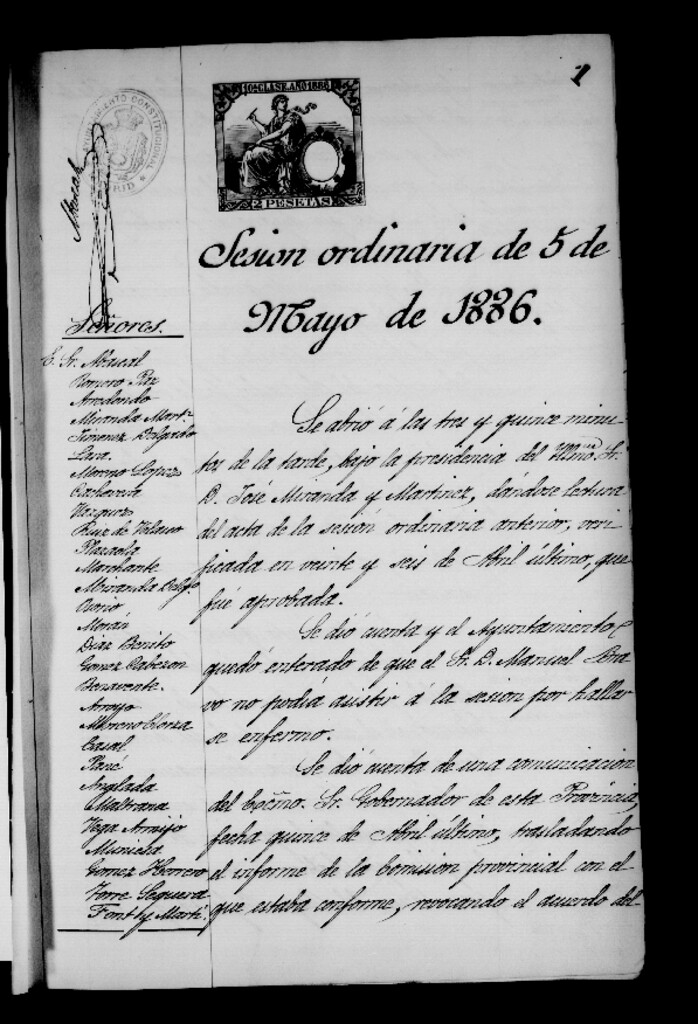 1
10ª CLASE. AÑO 1886
2 PESETAS
AYUNTAMIENTO CONSTITUCIONAL
MADRID
Abascal
Sesion ordinaria de 5 de
Mayo de 1886.
Señores.
E. Sr. Abascal
Romero Paz
Arredondo
Miranda Martz
Jimenez Delgado
Lara.
Moreno Lopez
Vazquez
Ruiz de Velasco
Plazaola
Marchante
Miranda Delg.
Osorio
Morán
Diaz Benito
Gomez Cabezon
Benavente.
Arroyo
Moreno Elorza
Casal
Pané
Anglada
Maltrana
Vega Armijo
Muniesa
Gomez Herrero
Torre Seguera
Font y Marti.
Se abrió á las tres y quince minu-
tos de la tarde, bajo la presidencia del Ylmo. Sr.
D. José Miranda y Martinez, dándose lectura
del acta de la sesión ordinaria anterior, veri-
ficada en veinte y seis de Abril último, que
fué aprobada.
Se dió cuenta y el Ayuntamiento
quedó enterado de que el Sr. D. Manuel Bra-
vo no podia asistir á la sesion por hallar
se enfermo.
Se dió cuenta de una comunicacion
del Excmo. Sr. Gobernador de esta Provincia,
fecha quince de Abril último, trasladando
el informe de la Comision provincial con el
que estaba conforme, revocando el acuerdo del